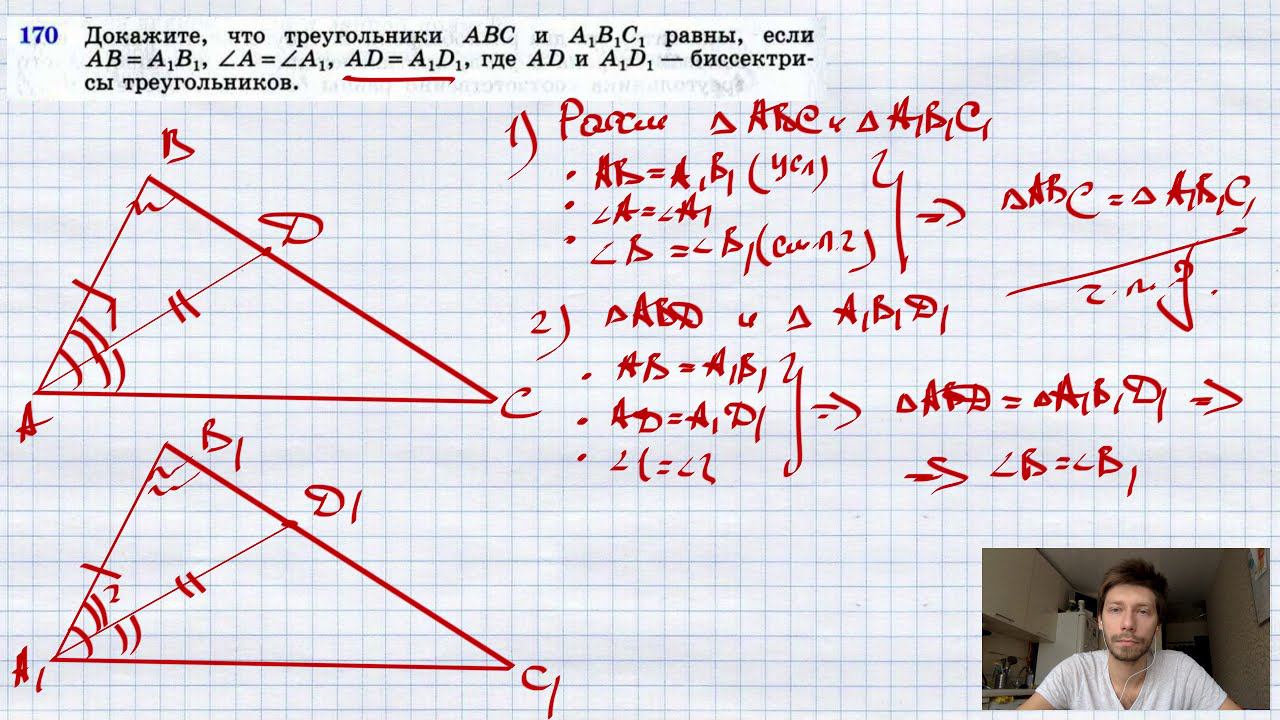 170 Докажите, что треугольники ABC и A₁B₁C₁ равны, если
AB = A₁B₁, ∠A = ∠A₁, AD = A₁D₁, где AD и A₁D₁ — биссектри-
сы треугольников.
B
D
A
C
B₁
D₁
2
A₁
C₁
1) Рассм △ABC и △A₁B₁C₁
· AB = A₁B₁ (усл)
· ∠A = ∠A₁
· ∠B = ∠B₁ (см п.2)
⇒ △ABC = △A₁B₁C₁
ч.т.д.
2) △ABD и △A₁B₁D₁
· AB = A₁B₁
· AD = A₁D₁
· ∠1 = ∠2
⇒ △ABD = △A₁B₁D₁ ⇒
⇒ ∠B = ∠B₁